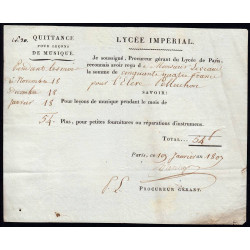 QUITTANCE
POUR LEÇONS
DE MUSIQUE.
LYCÉE IMPÉRIAL.
Je soussigné, Procureur gérant du Lycée de Paris,
reconnais avoir reçu de Monsieur
la somme de cinquante quatre francs
pour l'Elève
SAVOIR:
Novembre 18
Décembre 18
Janvier 18
Pour leçons de musique pendant le mois de
54 Plus, pour petites fournitures ou réparations d'instrumens.
TOTAL 54
Paris, ce janvier 180
PROCUREUR GÉRANT.